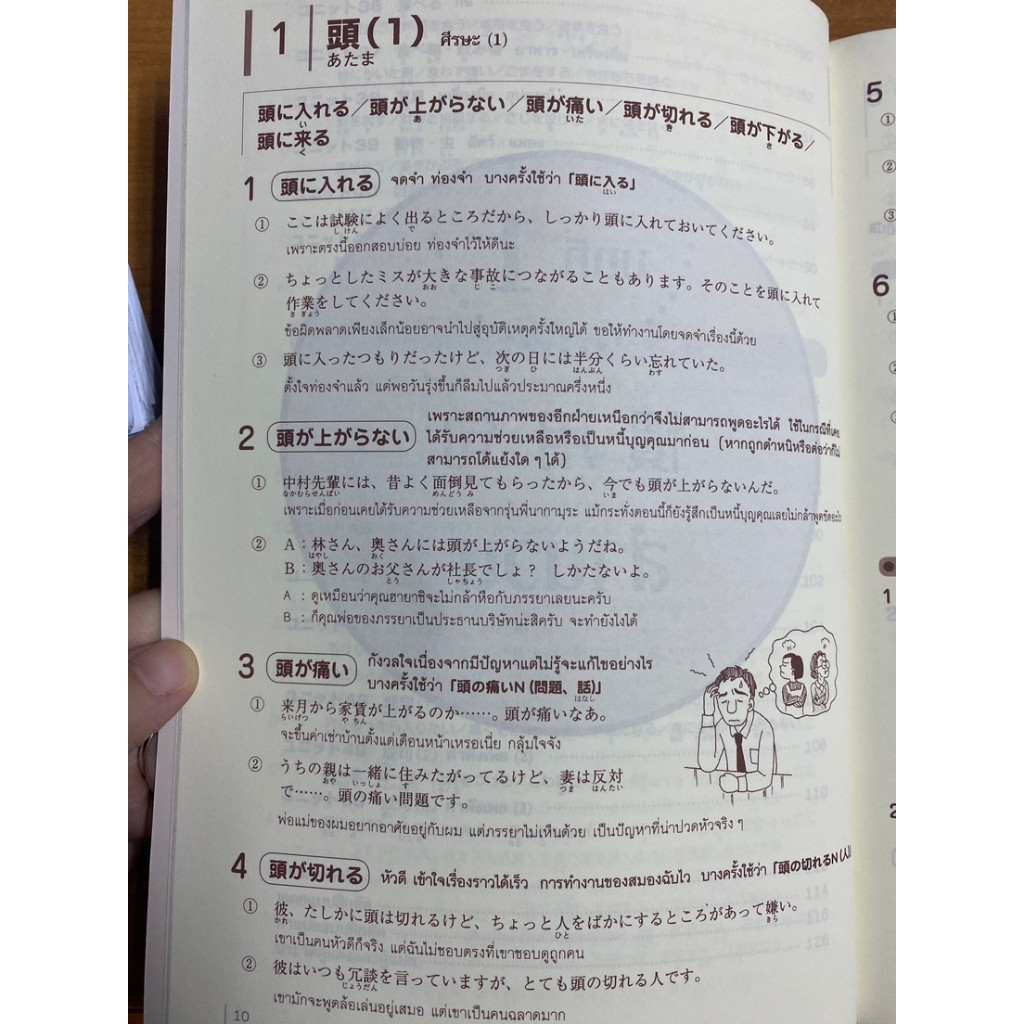 1 頭(1) ศีรษะ (1)
あたま
頭に入れる／頭が上がらない／頭が痛い／頭が切れる／頭が下がる／
い あ いた き さ
頭に来る
く
1 頭に入れる จดจำ ท่องจำ บางครั้งใช้ว่า「頭に入る」
はい
① ここは試験によく出るところだから、しっかり頭に入れておいてください。
し けん で
เพราะตรงนี้ออกสอบบ่อย ท่องจำไว้ให้ดีนะ
② ちょっとしたミスが大きな事故につながることもあります。そのことを頭に入れて
おお じ こ
作業をしてください。
さ ぎょう
ข้อผิดพลาดเพียงเล็กน้อยอาจนำไปสู่อุบัติเหตุครั้งใหญ่ได้ ขอให้ทำงานโดยจดจำเรื่องนี้ด้วย
③ 頭に入ったつもりだったけど、次の日には半分くらい忘れていた。
つぎ ひ はんぶん わす
ตั้งใจท่องจำแล้ว แต่พอวันรุ่งขึ้นก็ลืมไปแล้วประมาณครึ่งหนึ่ง
2 頭が上がらない เพราะสถานภาพของอีกฝ่ายเหนือกว่าจึงไม่สามารถพูดอะไรได้ ใช้ในกรณีที่เคย
ได้รับความช่วยเหลือหรือเป็นหนี้บุญคุณมาก่อน (หากถูกตำหนิหรือต่อว่าก็ไม่
สามารถโต้แย้งใด ๆ ได้)
① 中村先輩には、昔よく面倒見てもらったから、今でも頭が上がらないんだ。
なかむらせんぱい めんどう み いま
เพราะเมื่อก่อนเคยได้รับความช่วยเหลือจากรุ่นพี่นากามุระ แม้กระทั่งตอนนี้ก็ยังรู้สึกเป็นหนี้บุญคุณเลยไม่กล้าพูดขัดอะไร
② A：林さん、奥さんには頭が上がらないようだね。
はやし おく
B：奥さんのお父さんが社長でしょ？ しかたないよ。
とう しゃちょう
A : ดูเหมือนว่าคุณฮายาชิจะไม่กล้าหือกับภรรยาเลยนะครับ
B : ก็คุณพ่อของภรรยาเป็นประธานบริษัทน่ะสิครับ จะทำยังไงได้
3 頭が痛い กังวลใจเนื่องจากมีปัญหาแต่ไม่รู้จะแก้ไขอย่างไร
บางครั้งใช้ว่า「頭の痛いN (問題、話)」
はなし
① 来月から家賃が上がるのか……。頭が痛いなあ。
らいげつ や ちん
จะขึ้นค่าเช่าบ้านตั้งแต่เดือนหน้าเหรอเนี่ย กลุ้มใจจัง
② うちの親は一緒に住みたがってるけど、妻は反対
おや いっしょ す つま はんたい
で……。頭の痛い問題です。
พ่อแม่ของผมอยากอาศัยอยู่กับผม แต่ภรรยาไม่เห็นด้วย เป็นปัญหาที่น่าปวดหัวจริง ๆ
4 頭が切れる หัวดี เข้าใจเรื่องราวได้เร็ว การทำงานของสมองฉับไว บางครั้งใช้ว่า「頭の切れるN (人)」
① 彼、たしかに頭は切れるけど、ちょっと人をばかにするところがあって嫌い。
かれ ひと きら
เขาเป็นคนหัวดีก็จริง แต่ฉันไม่ชอบตรงที่เขาชอบดูถูกคน
② 彼はいつも冗談を言っていますが、とても頭の切れる人です。
じょうだん
เขามักจะพูดล้อเล่นอยู่เสมอ แต่เขาเป็นคนฉลาดมาก
10
5
①
②
③
6
1